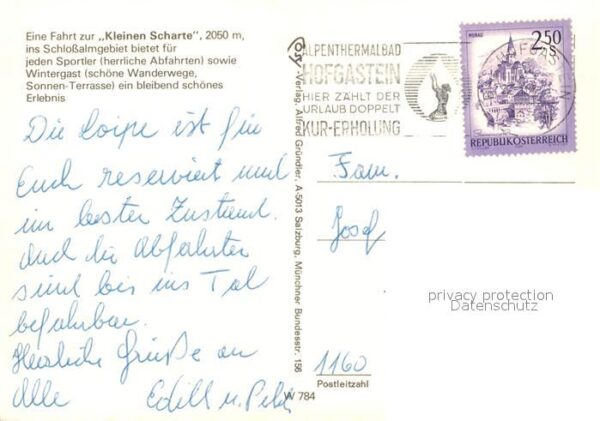 Eine Fahrt zur „Kleinen Scharte", 2050 m,
ins Schloßalmgebiet bietet für
jeden Sportler (herrliche Abfahrten) sowie
Wintergast (schöne Wanderwege,
Sonnen-Terrasse) ein bleibend schönes
Erlebnis
Die Loipe ist für
Euch reserviert und
im besten Zustand.
Auch die Abfahrten
sind bis ins Tal
befahrbar.
Herzliche Grüße an
Alle Edith u.
-Verlag, Alfred Gründler, A-5013 Salzburg, Münchner Bundesstr. 156
W 784
ALPENTHERMALBAD
HOFGASTEIN
HIER ZÄHLT DER
URLAUB DOPPELT
KUR-ERHOLUNG
MURAU
2.50
S
REPUBLIK ÖSTERREICH
Fam.
Josef
privacy protection
Datenschutz
1160
Postleitzahl